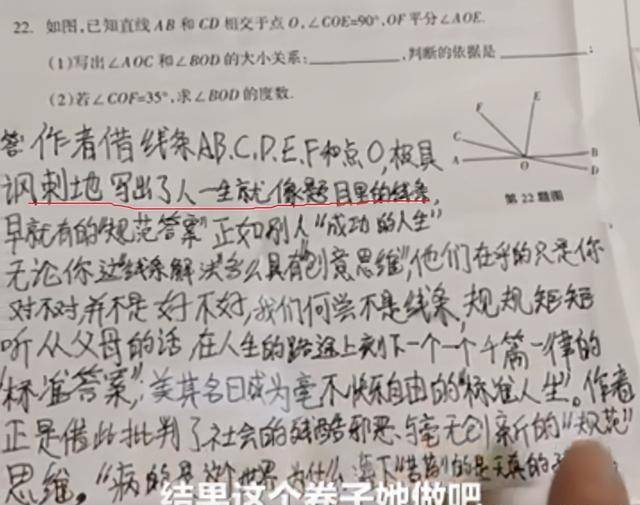 22. 如图,已知直线AB和CD相交于点O,∠COE=90°,OF平分∠AOE.
(1)写出∠AOC和∠BOD的大小关系:__________,判断的依据是__________;
(2)若∠COF=35°,求∠BOD的度数.
F
E
C
A
O
B
D
第22题图
答 作者借线条AB.C.D.E.F和点O,极具
讽刺地写出了人一生就像题目里的线条,
早就有的"规范答案"正如别人"成功的人生"
无论你这"线条解法"多么具有"创意思维",他们在乎的只是你
对不对,并不是好不好,我们何尝不是线条,规规矩矩
听从父母的话,在人生的路途上刻下一个一个千篇一律的
"标准答案",美其名曰成为毫不快乐自由的"标准人生"。作者
正是借此批判了社会的残酷邪恶与毫无创新的"规范"
思维。"病的是这个世界,为什么 下"苦药"的是天真的
结果这个卷子她做吧